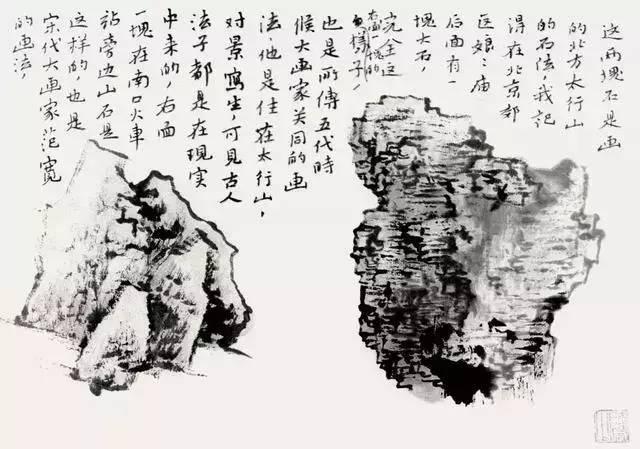 这两塊石是画
的北方太行山
的石法，我記
得在北京郊
区娘〻庙
后面有一
塊大石，
完全這
樣子，
也是所傳五代時
候大画家关同的画
法，他是住在太行山，
对景寫生，可見古人
法子都是在現实
中来的，右面
一塊在南口火車
站旁边山石是
这样的，也是
宋代大画家范寬
的画法，